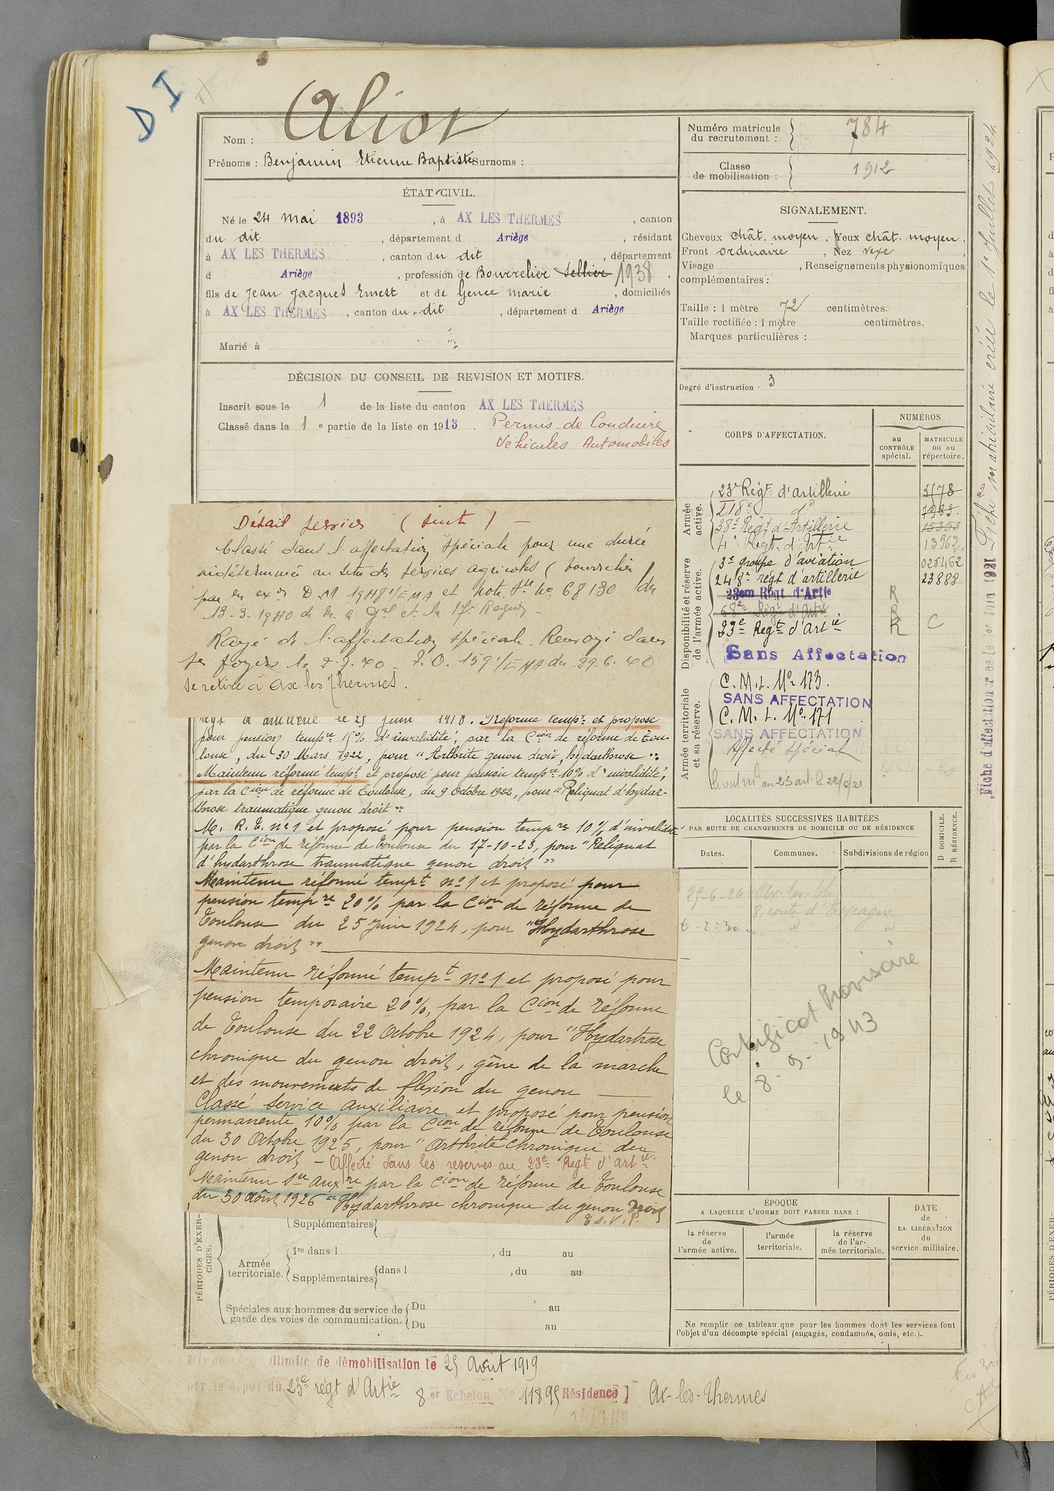 DI
Nom : Aliot
Prénoms : Benjamin Etienne Baptiste Surnoms :
Numéro matricule du recrutement : 784
Classe de mobilisation : 1912
ÉTAT CIVIL.
Né le 24 mai 1893, à AX LES THERMES, canton
du dit, département d Ariège, résidant
à AX LES THERMES, canton du dit, département
d Ariège, profession de Bourrelier Sellier 1938.
fils de Jean Jacques Ernest et de Gence marie, domiciliés
à AX LES THERMES, canton du dit, département d Ariège
Marié à
SIGNALEMENT.
Cheveux chât. moyen, Yeux chât. moyen,
Front ordinaire, Nez vexe,
Visage , Renseignements physionomiques
complémentaires :
Taille : 1 mètre 72 centimètres.
Taille rectifiée : 1 mètre centimètres.
Marques particulières :
Degré d'instruction : 3
DÉCISION DU CONSEIL DE REVISION ET MOTIFS.
Inscrit sous le 1 de la liste du canton AX LES THERMES
Classé dans la 1e partie de la liste en 1913. Permis de Conduire
Véhicules Automobiles
Détail services (suite) -
Classé dans l'affectation spéciale pour une durée
indéterminée au titre des services agricoles (bourrelier)
Rayé de l'affectation spéciale. Renvoyé dans
ses foyers le
Se retire à Ax les Thermes.
régt d'artillerie le 25 juin 1918. Réformé tempre et proposé
pour pension tempre 15% d'invalidité, par la Cion de réforme de Tou-
louse, du 30 Mars 1922, pour "Arthrite genou droit, hydarthrose".
Maintenu réformé tempt et proposé pour pension tempre 10% d'invalidité,
par la Cion de réforme de Toulouse, du 9 Octobre 1922, pour "Reliquat d'hydar-
throse traumatique genou droit".
M. R. T. no 1 et proposé pour pension tempre 10% d'invalidité
par la Cion de réforme de Toulouse du 17-10-23, pour "Reliquat
d'hydarthrose traumatique genou droit"
Maintenu réformé tempt no 1 et proposé pour
pension tempre 20% par la Cion de réforme de
Toulouse du 25 Juin 1924, pour "Hydarthrose
genou droit"
Maintenu réformé tempt no 1 et proposé pour
pension temporaire 20%, par la Cion de réforme
de Toulouse du 22 Octobre 1924, pour "Hydartrose
chronique du genou droit, gêne de la marche
et des mouvements de flexion du genou
Classé Service auxiliaire et proposé pour pension
permanente 10% par la Cion de réforme de Toulouse
du 30 Octobre 1925, pour "Arthrite chronique du
genou droit - Affecté dans les réserves au 23e Régt d'artie
Maintenu Sce auxre par la Cion de réforme de Toulouse
du 30 Août 1926 "Hydarthrose chronique du genou droit
CORPS D'AFFECTATION.
NUMÉROS
au contrôle spécial.
MATRICULE ou au répertoire.
Armée active.
23e Régt d'artillerie 3178
218e do
38e Régt d'Artillerie
4e Régt d'Artie 13962
Disponibilité et réserve de l'armée active.
3e groupe d'aviation
248e régt d'artillerie 23888
23em Régt d'Artie R
68e Régt d'Artie R
23e Régt d'artie R C
Sans Affectation
Armée territoriale et sa réserve.
C. M. I. No 173.
SANS AFFECTATION
C. M. I. No 171
SANS AFFECTATION
Affecté spécial
LOCALITÉS SUCCESSIVES HABITÉES
PAR SUITE DE CHANGEMENTS DE DOMICILE OU DE RÉSIDENCE
Dates. Communes. Subdivisions de région
D DOMICILE. R RÉSIDENCE.
Ax-les-Th
8, route d'Espagne
Certificat Provisoire
le 8-9-1943
ÉPOQUE
A LAQUELLE L'HOMME DOIT PASSER DANS :
la réserve de l'armée active.
l'armée territoriale.
la réserve de l'armée territoriale.
DATE de LA LIBÉRATION du service militaire.
Ne remplir ce tableau que pour les hommes dont les services font
l'objet d'un décompte spécial (engagés, condamnés, omis, etc.).
PÉRIODES D'EXERCICES.
Supplémentaires
Armée territoriale.
1re dans l , du au
Supplémentaires dans l , du au
Spéciales aux hommes du service de
garde des voies de communication.
Du au
Du au
illimité de démobilisation le 25 Août 1919
par le dépôt du 23e régt d'Artie 8er Echelon No 11895 Résidence Ax-les-Thermes
Fiche matriculaire créée le 1er Juillet 1924